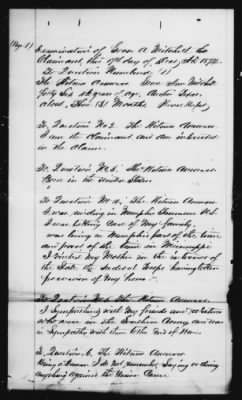 Examination of A. Mitchell the
Claimant, this 19th day of 1874
To Question Numbered
The Witness Answers
Forty Six of age,
about Months
To Question No 2. The Witness Answers
I am the Claimant and am interested
in the Claim.
To Question No. The Witness Answers
Born in the United States
To Question No 4, The Witness Answers
I was residing in Memphis Tennessee U.S.
I was taking Care of my family,
was living in Memphis part of the time
and part of the time in Mississippi
I visited my Mother in the interior of
the State, the Federal troops having taken
possession of my home
To Question No The Witness Answers
I Sympathised with my friends and relatives
who were in the Southern Army, and was
in Sympathy with them till the End of War.
To Question 6. The Witness Answers
being a Woman I do not remember Saying or doing
anything against the Union Cause